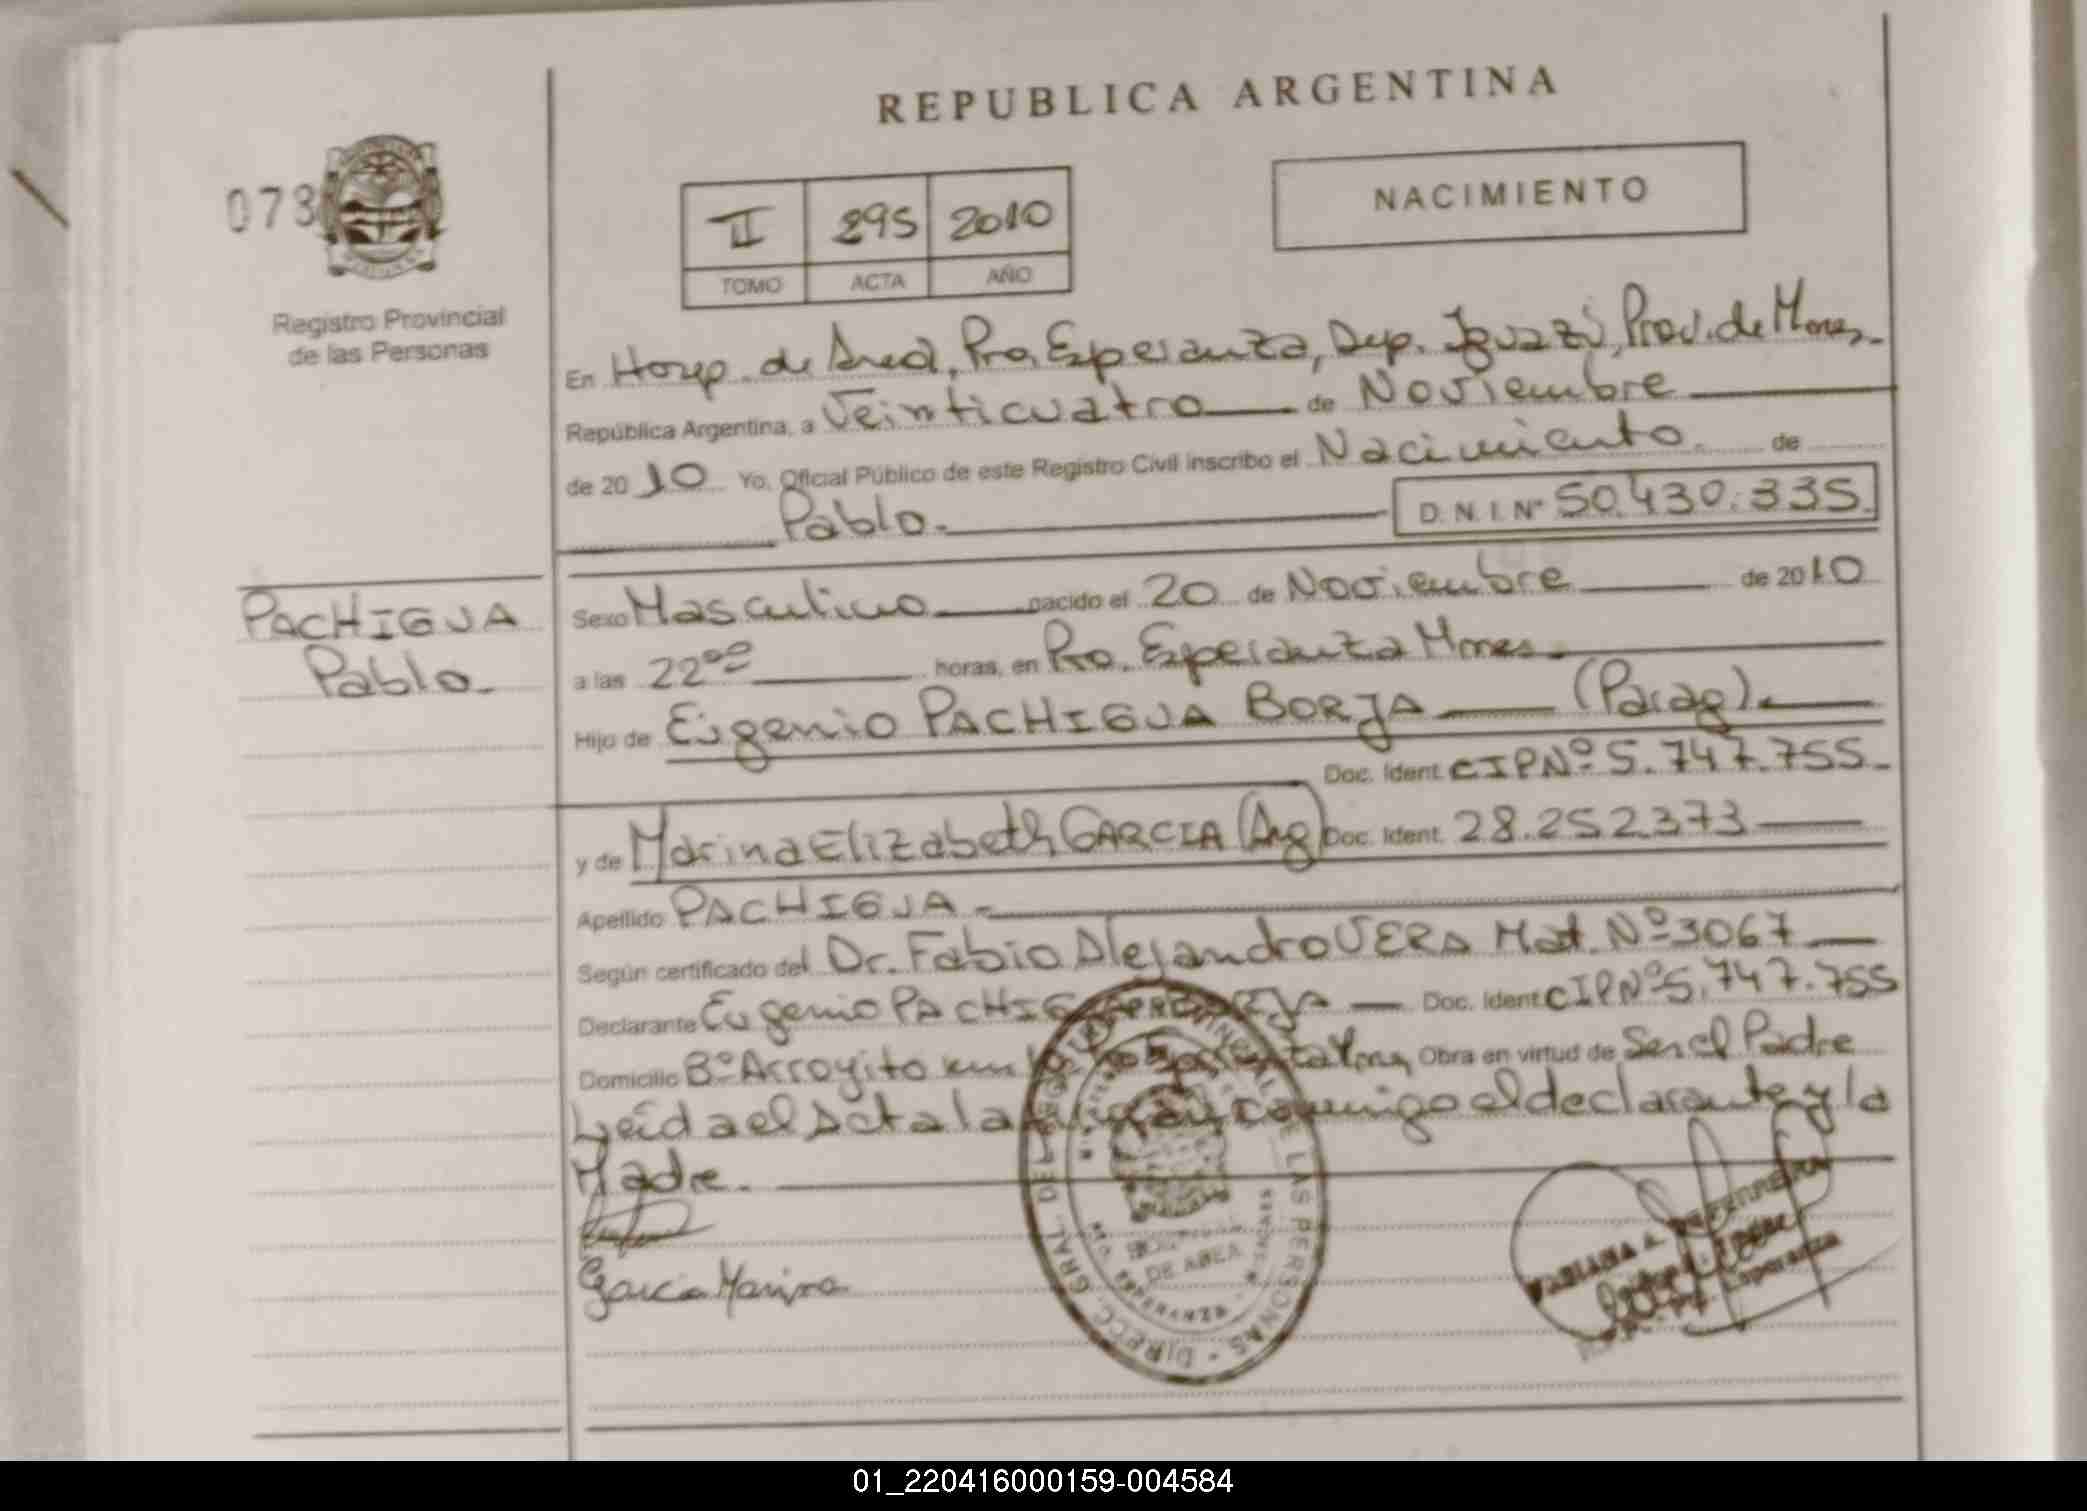 REPUBLICA ARGENTINA
073
NACIMIENTO
II 295 2010
TOMO ACTA AÑO
Registro Provincial
de las Personas
En Hosp. de Area, Pto. Esperanza, Dep. Iguazú, Prov. de Mnes.
República Argentina, a Veinticuatro de Noviembre
de 2010 Yo, Oficial Público de este Registro Civil inscribo el Nacimiento de
Pablo. D. N. I. Nº 50.430.335.
PACHIGUA
Pablo.
Sexo Masculino nacido el 20 de Noviembre de 2010
a las 22ºº horas, en Pto. Esperanza Mnes.
Hijo de Eugenio PACHIGUA BORJA (Parag).
Doc. Ident. CIPNº 5.747.755.
y de Marina Elizabeth GARCIA (Arg) Doc. Ident. 28.252.373
Apellido PACHIGUA.
Según certificado del Dr. Fabio Alejandro VERA Mat. Nº 3067
Declarante Eugenio PACHIGUA BORJA Doc. Ident. CIPNº 5.747.755
Domicilio Bº Arroyito Obra en virtud de Ser el Padre
Leída el Acta la conmigo el declarante y la
Madre.
Garcia Marina
DIRECC. GRAL. DEL REGISTRO PROVINCIAL DE LAS PERSONAS
DE AREA
ESPERANZA
FABIANA A.
Pto. Esperanza
01_220416000159-004584